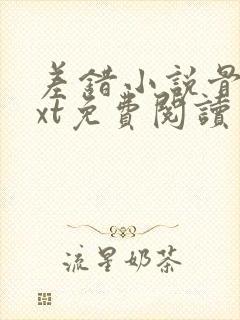 差錯小説
xt免費閱讀
流星奶茶